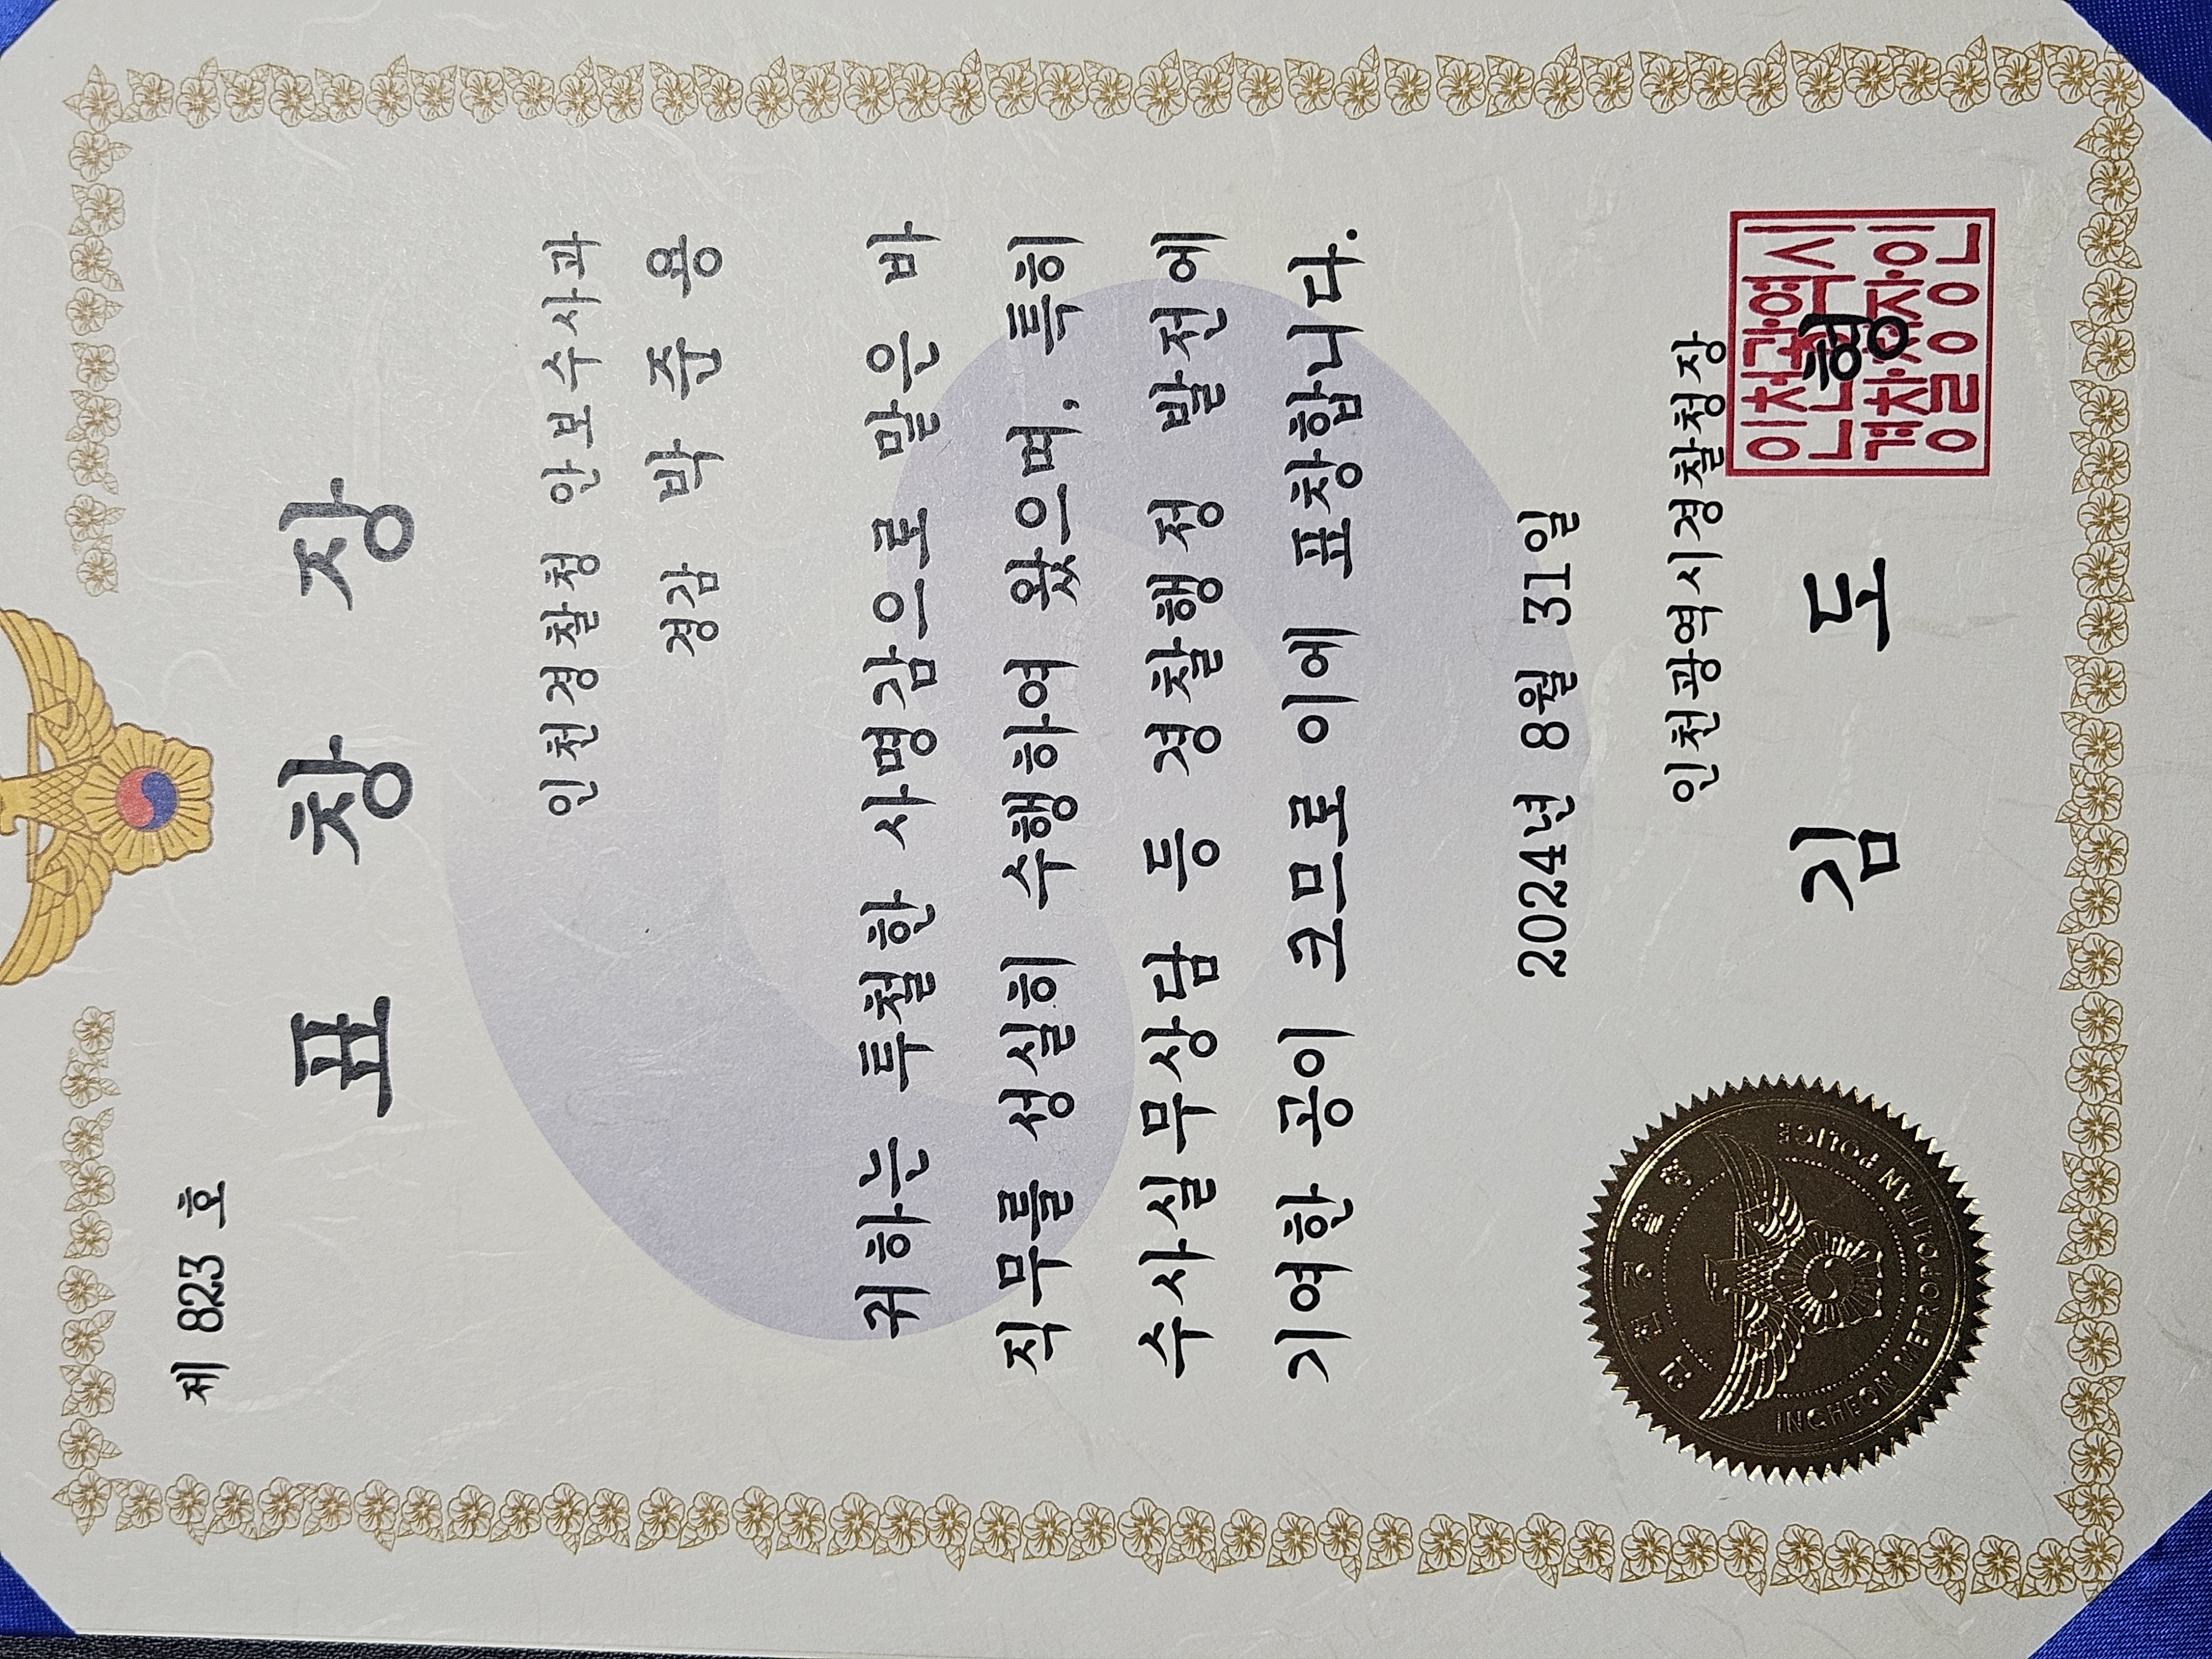 제 823 호
표 창 장
인천경찰청 안보수사과
경감 박 준 용
귀하는 투철한 사명감으로 맡은 바
직무를 성실히 수행하여 왔으며, 특히
수사실무상담 등 경찰행정 발전에
기여한 공이 크므로 이에 표창합니다.
2024년 8월 31일
인천광역시경찰청장
김 도 형
인천광역시
경찰청장인
인천경찰청
INCHEON METROPOLITAN POLICE